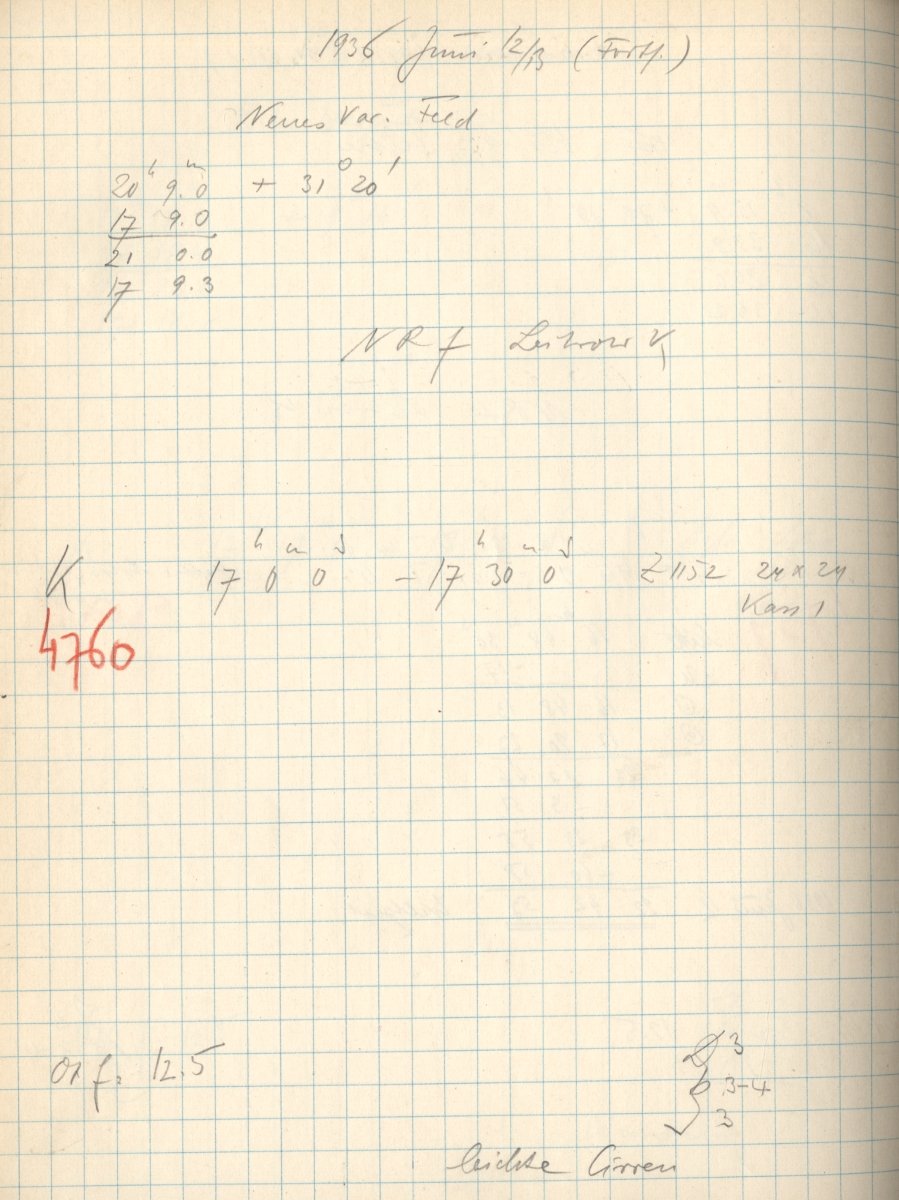 1936 Juni 12/13 (Forts.)
Neues Var. Feld
20ʰ 9.0ᵐ + 31° 20'
17 9.0
21 0.0
17 9.3
NRf Leitrohr V₁
K 17ʰ 0ᵐ 0ˢ – 17ʰ 30ᵐ 0ˢ Z 1152 24 x 24
Kass 1
4760
12.5 3
3-4
3
leichte Cirren